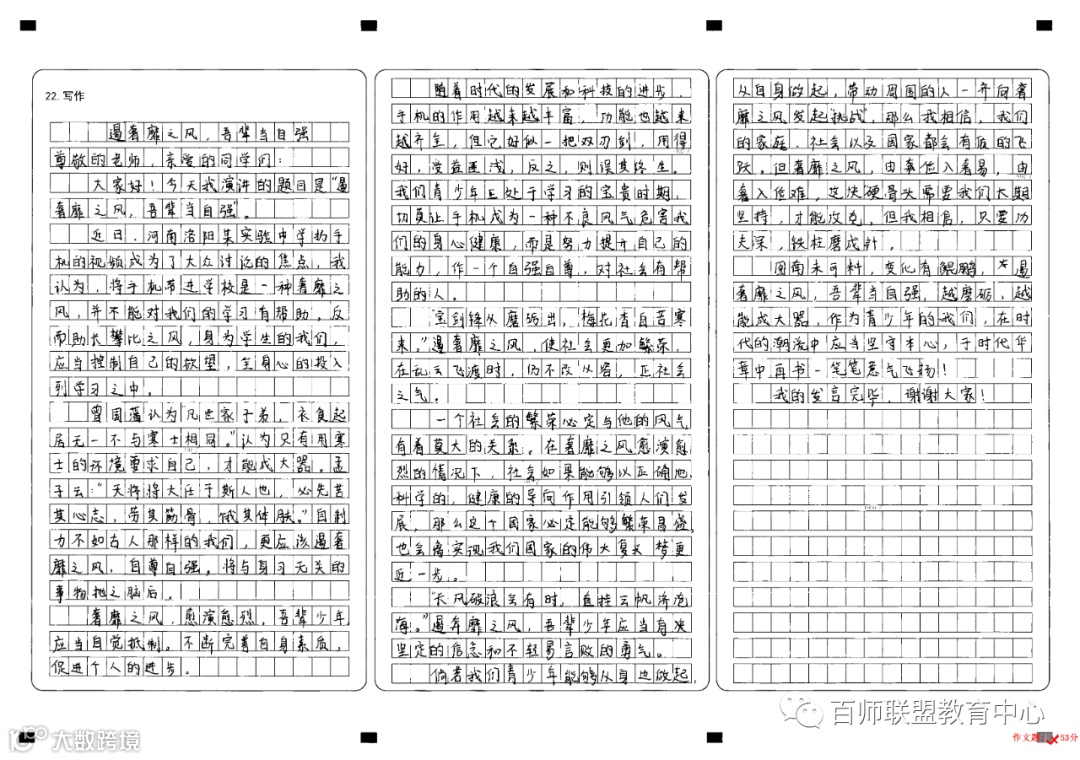 22. 写作
遏奢靡之风，吾辈当自强
尊敬的老师，亲爱的同学们：
大家好！今天我演讲的题目是“遏
奢靡之风，吾辈当自强”。
近日，河南洛阳某实验中学扔手
机的视频成为了大众讨论的焦点，我
认为，将手机带进学校是一种奢靡之
风，并不能对我们的学习有帮助，反
而助长攀比之风，身为学生的我们，
应当控制自己的欲望，全身心的投入
到学习之中。
曾国藩认为凡世家子弟，衣食起
居无一不与寒士相同。”认为只有用寒
士的环境要求自己，才能成大器。孟
子云：“天将将大任于斯人也，必先苦
其心志，劳其筋骨，饿其体肤。”自制
力不如古人那样的我们，更应该遏奢
靡之风，自尊自强，将与学习无关的
事物抛之脑后。
奢靡之风，愈演愈烈，吾辈少年
应当自觉抵制。不断完善自身素质，
促进个人的进步。
随着时代的发展和科技的进步，
手机的作用越来越丰富，功能也越来
越齐全，但它好似一把双刃剑，用得
好，受益匪浅，反之，则误其终生。
我们青少年正处于学习的宝贵时期，
切莫让手机成为一种不良风气危害我
们的身心健康，而是努力提升自己的
能力，作一个自强自尊，对社会有帮
助的人。
宝剑锋从磨砺出，梅花香自苦寒
来。”遏奢靡之风，使社会更加繁荣，
在乱云飞渡时，仍不改从容，正社会
之气。
一个社会的繁荣必定与他的风气
有着莫大的关系。在奢靡之风愈演愈
烈的情况下，社会如果能够以正确地
科学的，健康的导向作用引领人们发
展，那么这个国家必定能够繁荣昌盛，
也会离实现我们国家的伟大复兴梦更
近一步。
“长风破浪会有时，直挂云帆济沧
海。”遏奢靡之风，吾辈少年应当有决
坚定的信念和不轻易言败的勇气。
倘若我们青少年能够从身边做起，
从自身做起，带动周围的人一齐向奢
靡之风发起“挑战”，那么我相信，我们
的家庭，社会以及国家都会有质的飞
跃。但奢靡之风，由奢俭入奢易，由
奢入俭难，这块“硬骨头”需要我们长期
坚持，才能攻克，但我相信，只要功
夫深，铁柱磨成针。
图南未可料，变化有鲲鹏，遏
奢靡之风，吾辈当自强，越磨砺，越
能成大器，作为青少年的我们，在时
代的潮流中应当坚守本心，于时代华
章中再书一笔笔意气飞扬！
我的发言完毕，谢谢大家！
百师联盟教育中心
大数跨境
53分